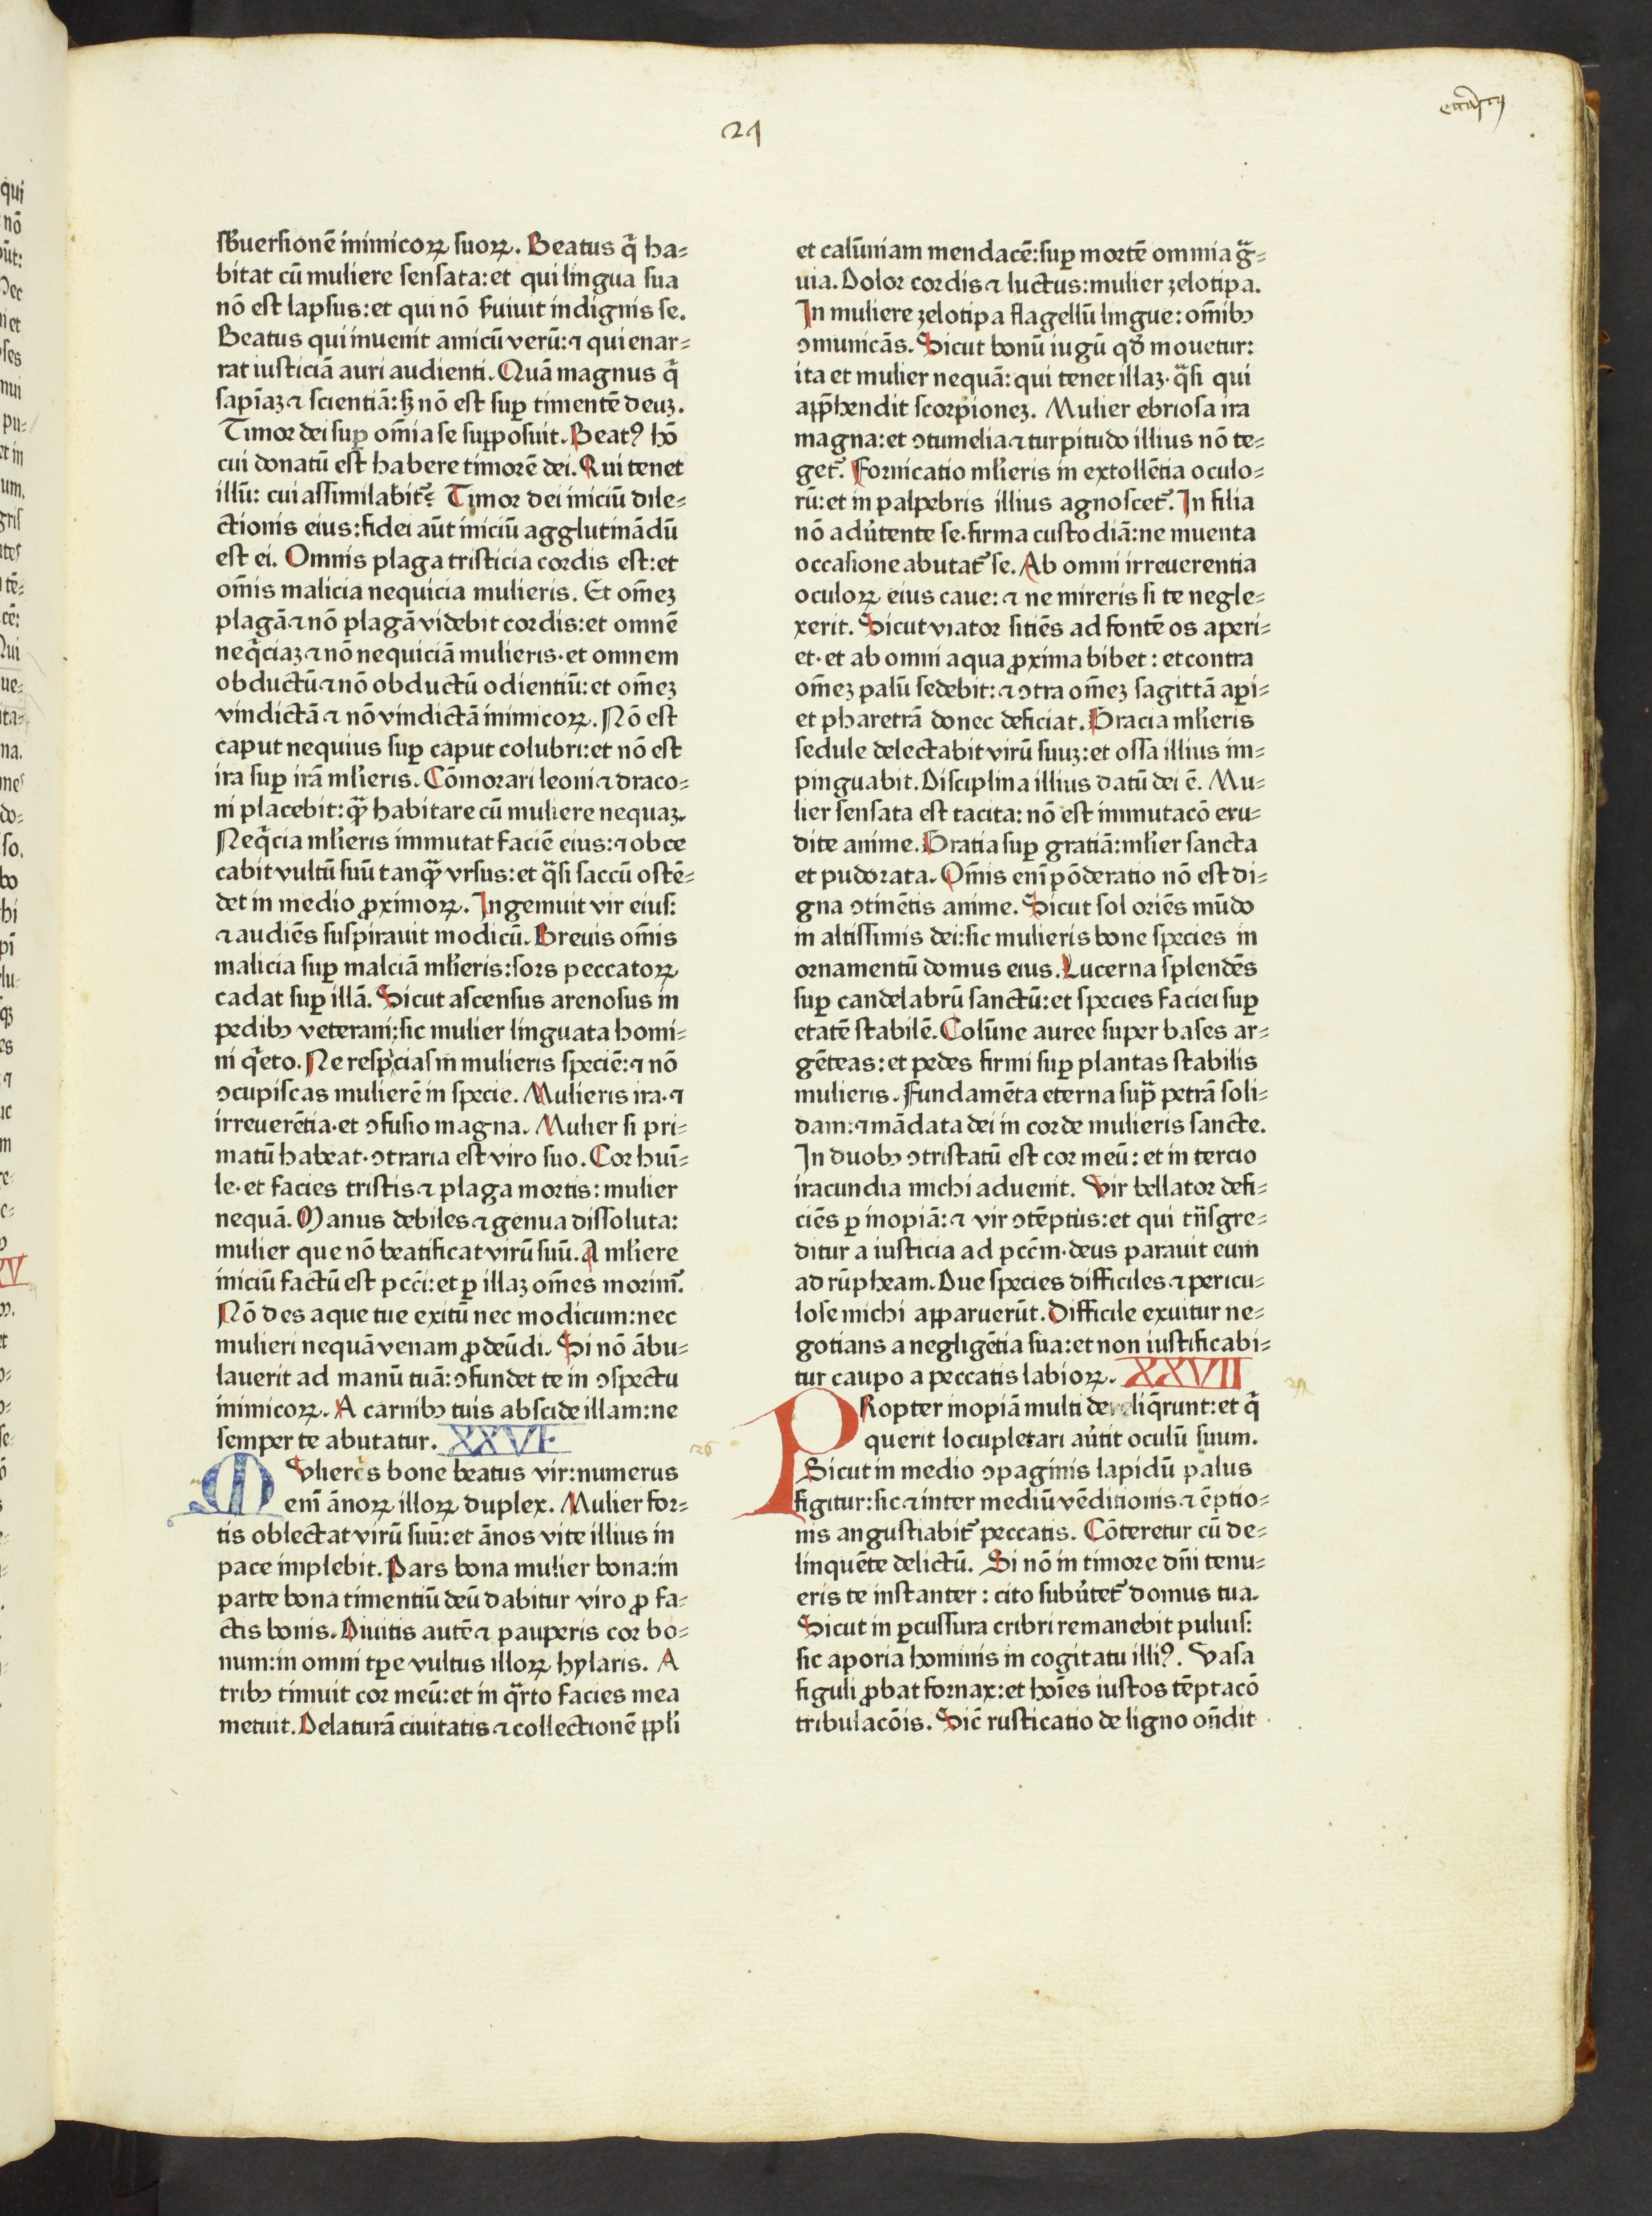 24
sb̄uersionē inimicoꝝ suoꝝ. Beatus qͥ ha⸗
bitat cū muliere sensata:et qui lingua sua
nō est lapsus:et qui nō s̄uiuit indignis se.
Beatus qui inuenit amicū verū:⁊ qui enar⸗
rat iusticiā auri audienti. Quā magnus qͥ
sapīaꝫ ⁊ scientiā:sꝫ nō est suꝑ timentē deuꝫ.
Timor dei suꝑ om̄ia se suꝑposuit. Beatꝰ hō
cui donatū est habere timorē dei. Qui tenet
illū: cui assimilabit᷑? Timor dei iniciū dile⸗
ctionis eius:fidei aūt iniciū agglutināndū
est ei. Omnis plaga tristicia cordis est:et
om̄is malicia nequicia mulieris. Et om̄eꝫ
plagā ⁊ nō plagā videbit cordis:et omnē
neqͥciaꝫ ⁊ nō nequiciā mulieris·et omnem
obductū ⁊ nō obductū odientiū:et om̄eꝫ
vindictā ⁊ nō vindictā inimicoꝝ. Nō est
caput nequius suꝑ caput colubri:et nō est
ira suꝑ irā ml̄ieris. Cōmorari leoni ⁊ draco⸗
ni placebit:qᷓꝫ habitare cū muliere nequaꝫ.
Neqͥcia ml̄ieris immutat faciē eius:⁊ obce
cabit vultū suū tanqᷓꝫ vrsus:et qᷓsi saccū ostē⸗
det in medio ꝓximoꝝ. Ingemuit vir eius:
⁊ audiēs suspirauit modicū. Breuis om̄is
malicia suꝑ malciā ml̄ieris:sors peccatoꝝ
cadat suꝑ illā. Sicut ascensus arenosus in
pedibꝫ veterani:sic mulier linguata homi⸗
ni qͥeto. Ne respicias in mulieris speciē:⁊ nō
ꝯcupiscas mulierē in specie. Mulieris ira·⁊
irreuerētia·et ꝯfusio magna. Mulier si pri⸗
matū habeat·ꝯtraria est viro suo. Cor huī⸗
le·et facies tristis ⁊ plaga mortis: mulier
nequā. Manus debiles ⁊ genua dissoluta:
mulier que nō beatificat virū suū. A ml̄iere
iniciū factū est pcc̄i:et ꝑ illaꝫ om̄es morim᷑.
Nō des aque tue exitū nec modicum:nec
mulieri nequā venam ꝓdeūdi. Si nō ābu⸗
lauerit ad manū tuā:ꝯfundet te in ꝯspectu
inimicoꝝ. A carnibꝫ tuis abscide illam:ne
semper te abutatur. XXVI
26
MVlieris bone beatus vir:numerus
enī ānoꝝ illoꝝ duplex. Mulier for⸗
tis oblectat virū suū:et ānos vite illius in
pace implebit. Pars bona mulier bona:in
parte bona timentiū deū dabitur viro ꝓ fa⸗
ctis bonis. Diuitis autē ⁊ pauperis cor bo⸗
num:in omni tꝑe vultus illoꝝ hylaris. A
tribꝫ timuit cor meū:et in qᷓrto facies mea
metuit. Delaturā ciuitatis ⁊ collectionē ppl̄i
et calūniam mendacē:suꝑ mortē omnia gᷓ⸗
uia. Dolor cordis ⁊ luctus:mulier zelotipa.
In muliere zelotipa flagellū lingue: om̄ibꝫ
ꝯmunicās. Sicut bonū iugū qd̄ mouetur:
ita et mulier nequā: qui tenet illaꝫ·qᷓsi qui
app̄hendit scorpioneꝫ. Mulier ebriosa ira
magna:et ꝯtumelia ⁊ turpitudo illius nō te⸗
get᷑. Fornicatio ml̄ieris in extollētia oculo⸗
rū:et in palpebris illius agnoscet᷑. In filia
nō adu᷑tente se·firma custodiā:ne inuenta
occasione abutat᷑ se. Ab omni irreuerentia
oculoꝝ eius caue: ⁊ ne mireris si te negle⸗
xerit. Sicut viator sitiēs ad fontē os aperi⸗
et·et ab omni aqua ꝓxima bibet : et contra
om̄eꝫ palū sedebit: ⁊ ꝯtra om̄eꝫ sagittā aꝑi⸗
et pharetrā donec deficiat. Gracia ml̄ieris
sedule delectabit virū suuꝫ:et ossa illius im⸗
pinguabit. Disciplina illius datū dei ē. Mu⸗
lier sensata est tacita: nō est immutacō eru⸗
dite anime. Gratia suꝑ gratiā:ml̄ier sancta
et pudorata. Om̄is enī pōderatio nō est di⸗
gna ꝯtinētis anime. Sicut sol oriēs mūdo
in altissimis dei:sic mulieris bone species in
ornamentū domus eius. Lucerna splendēs
suꝑ candelabrū sanctū:et species faciei suꝑ
etatē stabilē. Colūne auree super bases ar⸗
gēteas:et pedes firmi suꝑ plantas stabilis
mulieris. Fundamēta eterna supᷓ petrā soli⸗
dam:⁊ mādata dei in corde mulieris sancte.
In duobꝫ ꝯtristatū est cor meū: et in tercio
iracundia michi aduenit. Vir bellator defi⸗
ciēs ꝑ inopiā: ⁊ vir ꝯtēptus:et qui tn̄sgre⸗
ditur a iusticia ad pcc̄m·deus parauit eum
ad rūpheam. Due species difficiles ⁊ pericu⸗
lose michi apparuerūt. Difficile exuitur ne⸗
gotians a negligētia sua:et non iustificabi⸗
tur caupo a peccatis labioꝝ. XXVII
27
PRopter inopiā multi dereliqͥrunt:et qͥ
querit locupletari au᷑tit oculū suum.
Sicut in medio ꝯpaginis lapidū palus
figitur:sic ⁊ inter mediū vēditionis ⁊ ēptio⸗
nis angustiabit᷑ peccatis. Cōteretur cū de⸗
linquēte delictū. Si nō in timore dn̄i tenu⸗
eris te instanter : cito subu᷑tet᷑ domus tua.
Sicut in ꝑcussura cribri remanebit puluis:
sic aporia hominis in cogitatu illiꝰ. Vasa
figuli ꝓbat fornax:et hoīes iustos tēptacō
tribulacōis. Sic̄ rusticatio de ligno oñdit